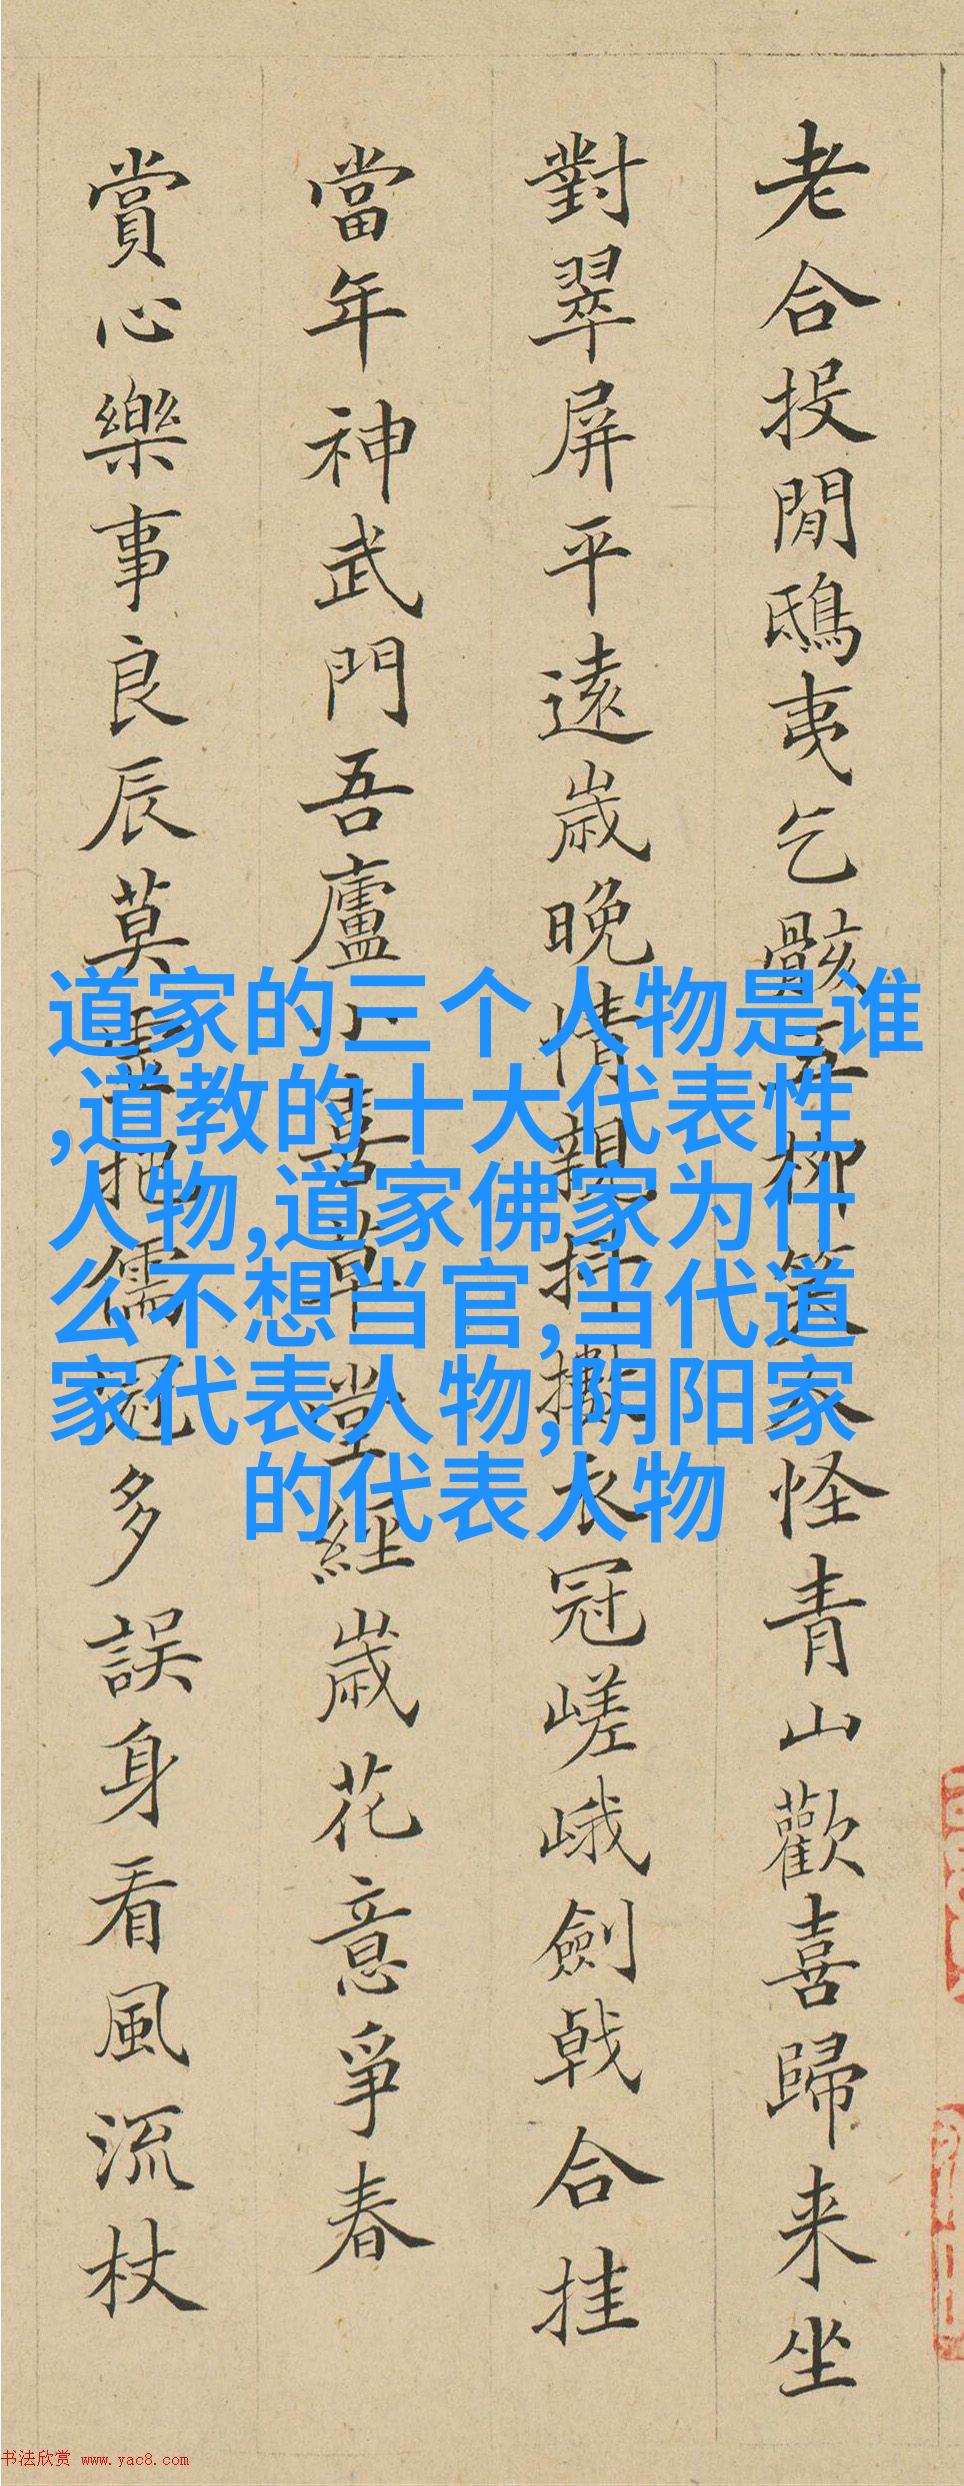 老合投閒鴟夷乞骸柳怪青山歡喜歸来坐
對翠屏平遠歲晚情親衣冠嵯峨劍戟合挂
當年神武門吾廬喜草堂經歲花意爭春
賞心樂事良辰莫把儒冠多誤身看風流杖
道家的三个人物是谁
,道教的十大代表性
人物,道家佛家为什
么不想当官,当代道
家代表人物,阴阳家
的代表人物
书法欣赏 www.yac8.com